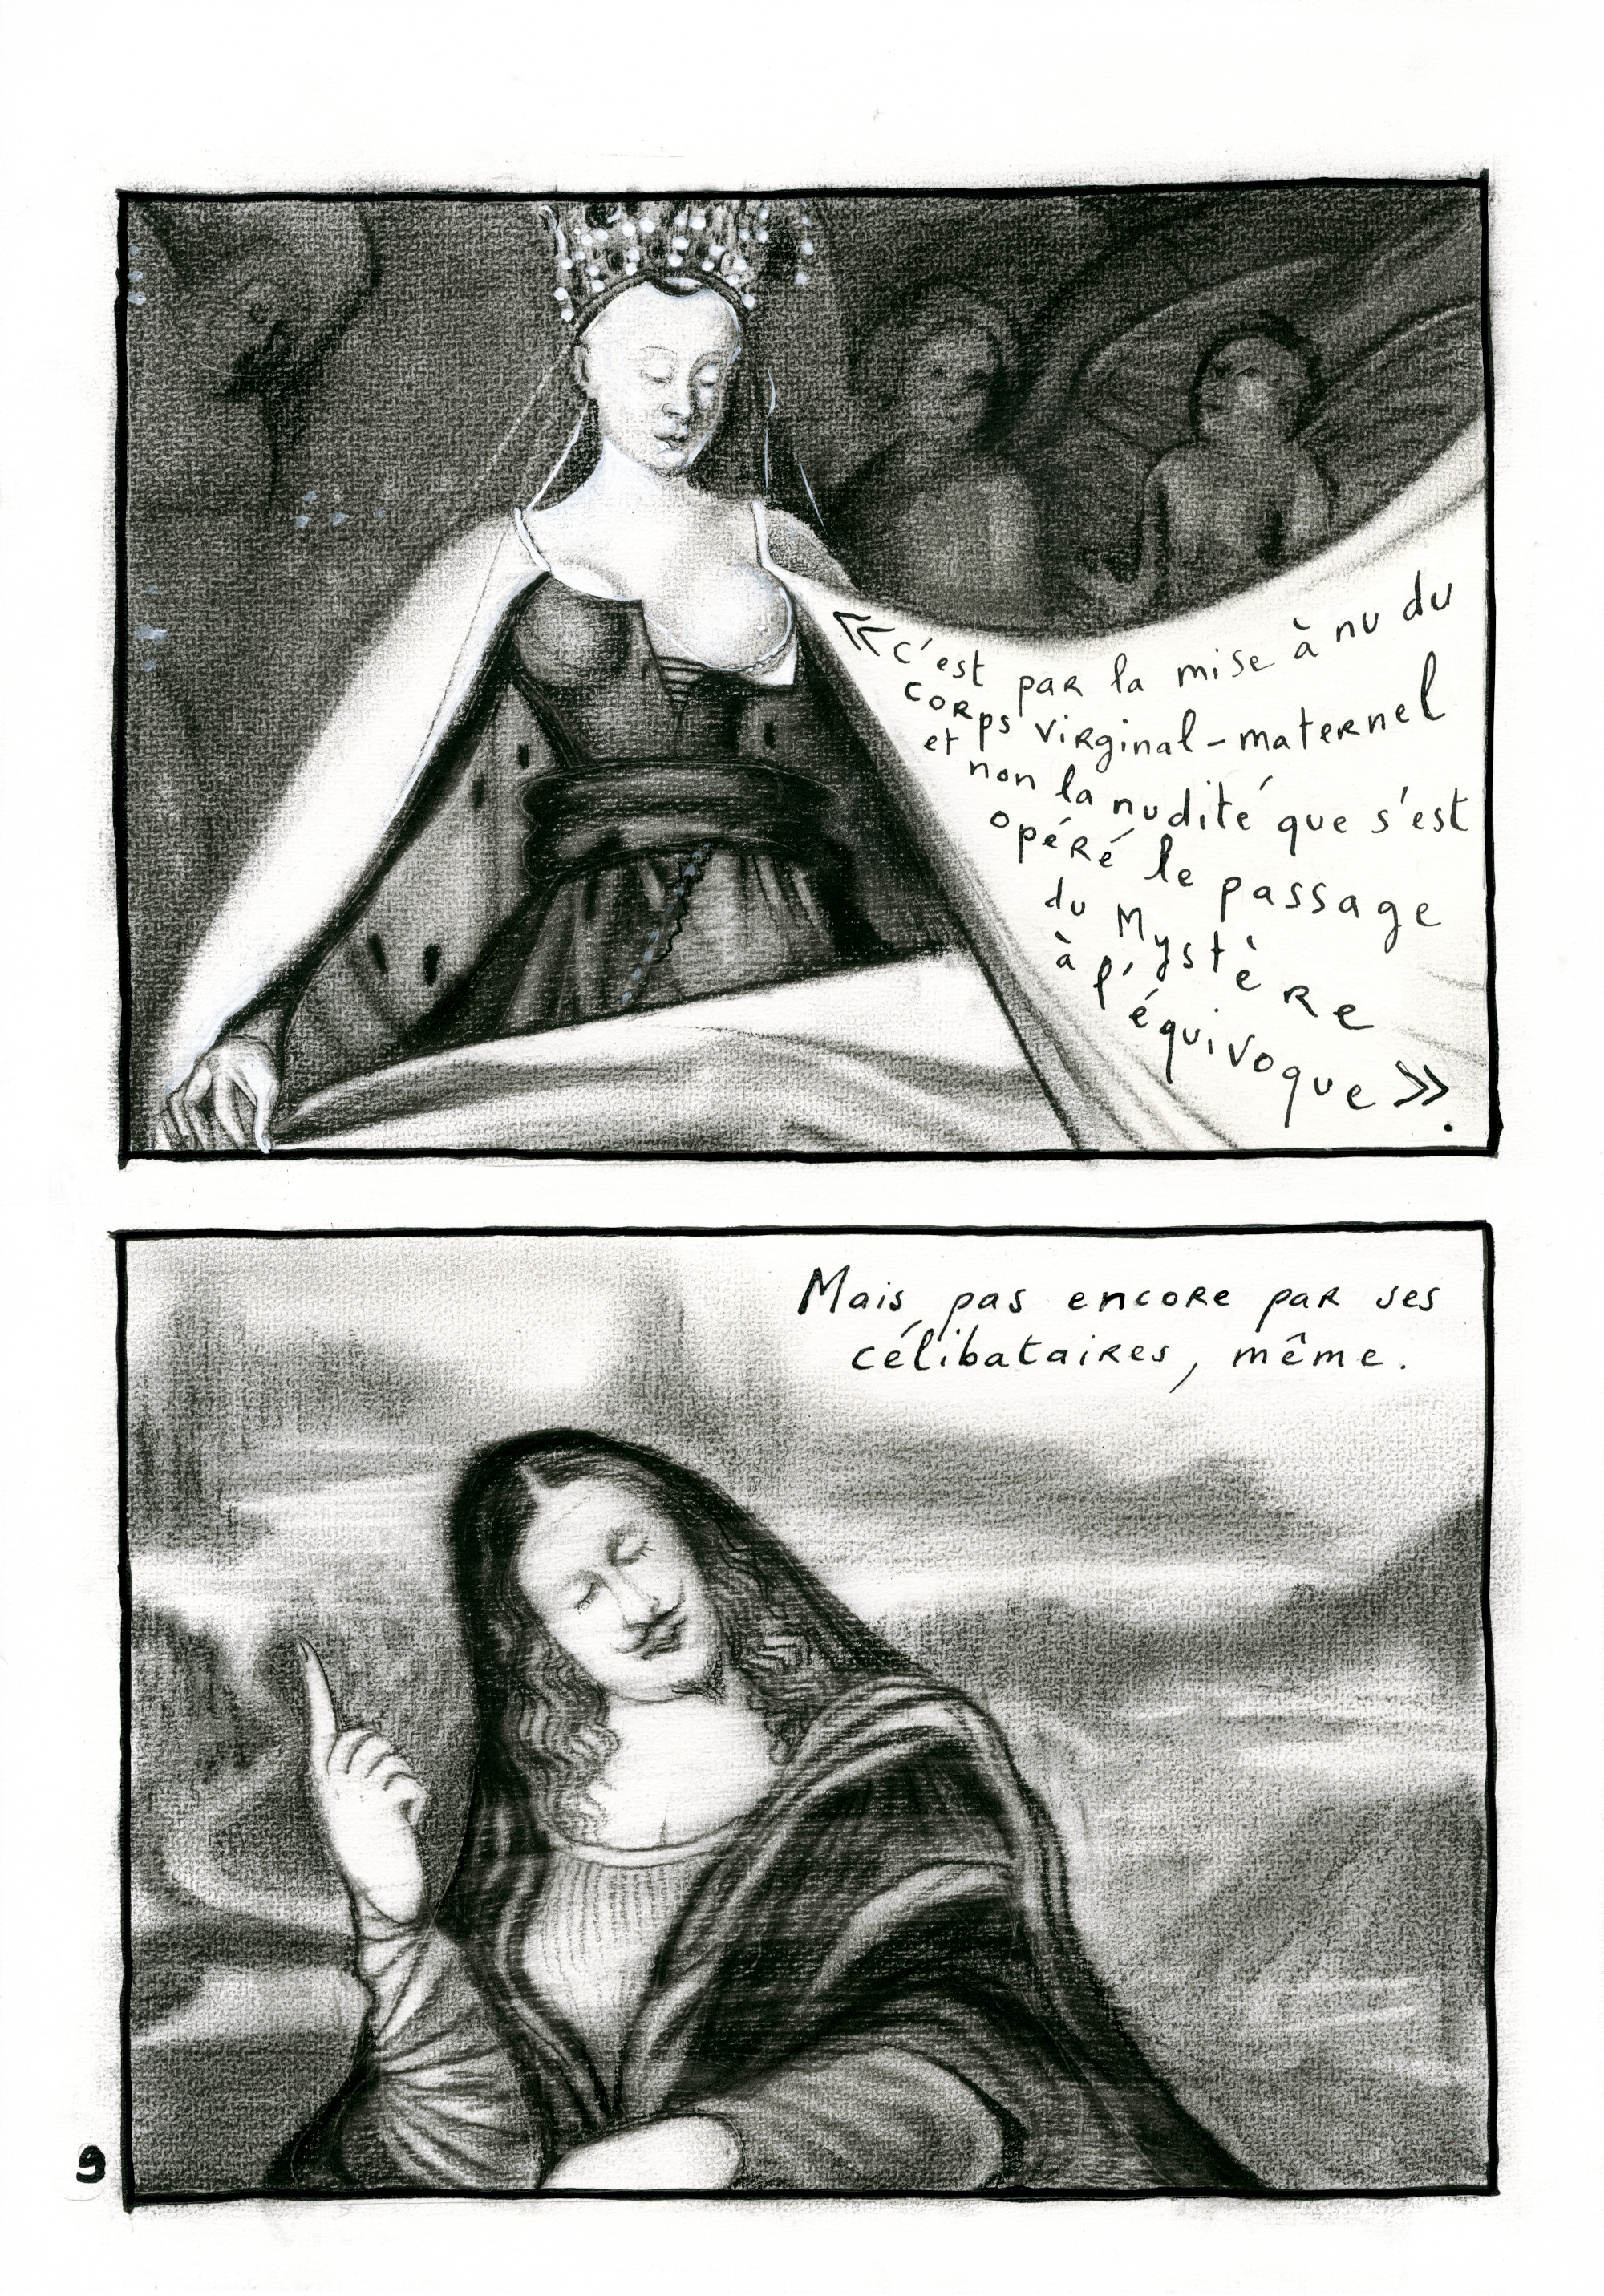 « c'est par la mise à nu du
corps virginal-maternel
et non la nudité que s'est
opéré le passage
du Mystère
à l'équivoque ».
Mais pas encore par ses
célibataires, même.
9